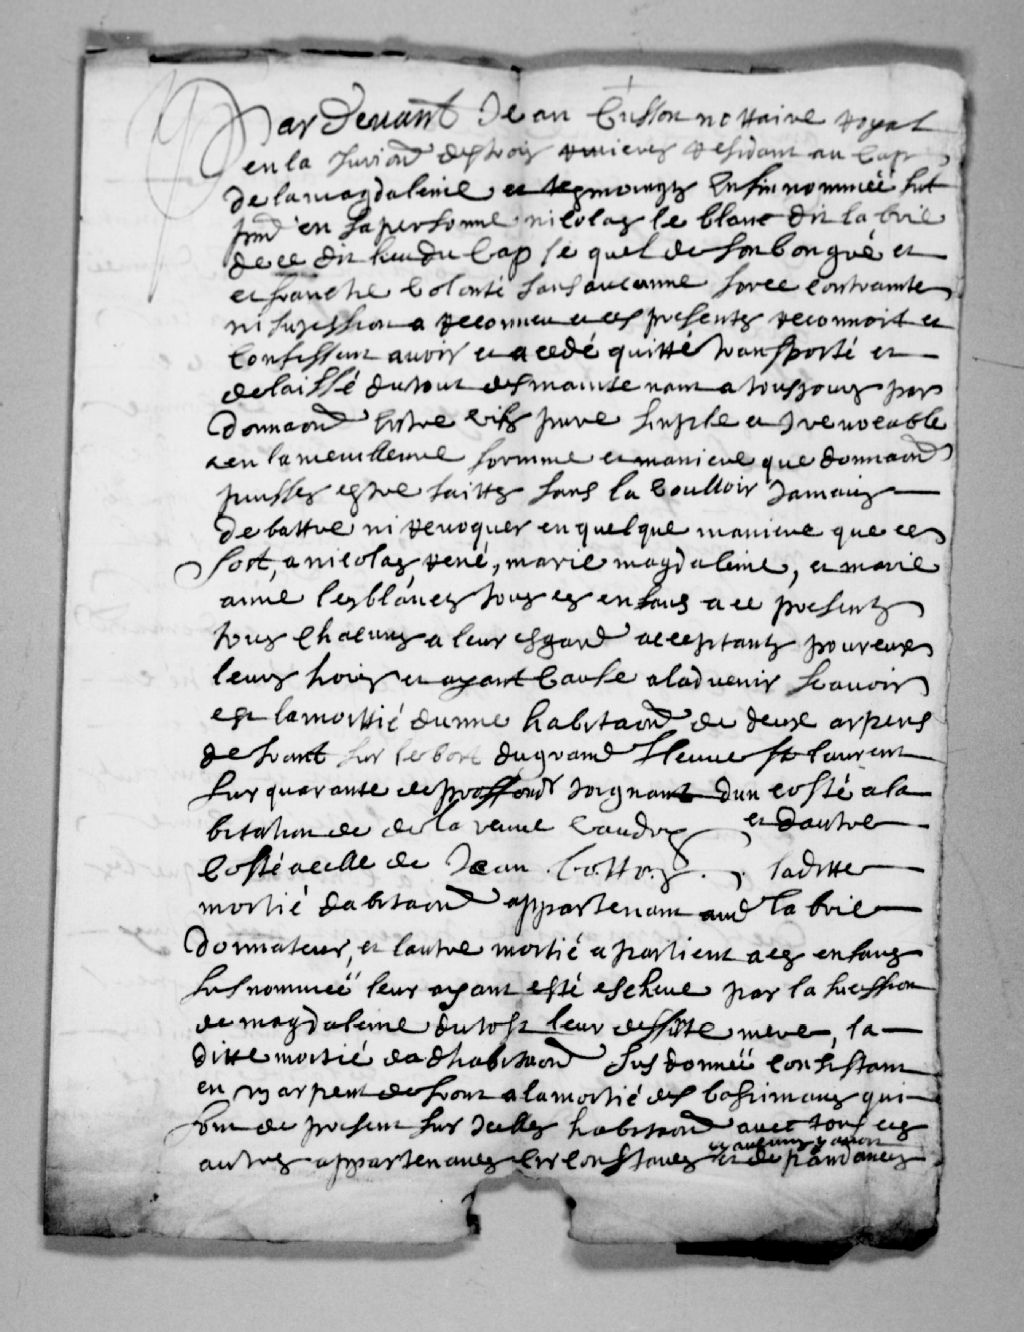 Par devant Jean Cusson nottaire Royal
en la Juridon des trois rivieres residant au Cap
de la magdaleine et tesmoings Ensin nommeés fut
pnt en sa personne nicolas le blanc dit la brie
de ce dit lieu du Cap le quel de son bon gré et
et franche Volonté sans aucunne force contrainte
ni supession a reconneu et ces presentes reconnoit et
Confessent avoir et a cedé quitté transporté et
delaissé du tout des maintenant a tousjours par
Donnaon Entre Vifs pure simple et Irevocable
et en la meilleure formme et maniere que donnaon
puisses estre faittes sans la Voulloir Jamais
debattre ni revoquer en quelque maniere que ce
soit, a nicolas rené, marie magdaleine, et marie
anne les blancs tous ces enfans a ce presents
tous Chacuns a leur esgard acceptants pour eux
leurs hoirs et ayant Cause aladvenir scavoir
est la moittié dunne habitaon de deux arpens
de front sur le bort du grand fleuve st laurent
sur quarante de proffond Joignant dun costé a la
bitation de de la veuve Vaudry et dautre
Costé a celle de Jean Cottos ladtte
moitié dabitaon appartenant aud la brie
Donnateur, et lautre moitié apartient a ces enfans
susnommeés leur ayant esté escheue par la sucession
de magdaleine dutost leur deffuite mere, la
ditte moitié da dhabitaon sus donneé Consistant
en un arpent de front a la moitié des bastimans qui
sont de present sur Icelles habitaon avec tous ces
autres appartenances Circonstances et depandances